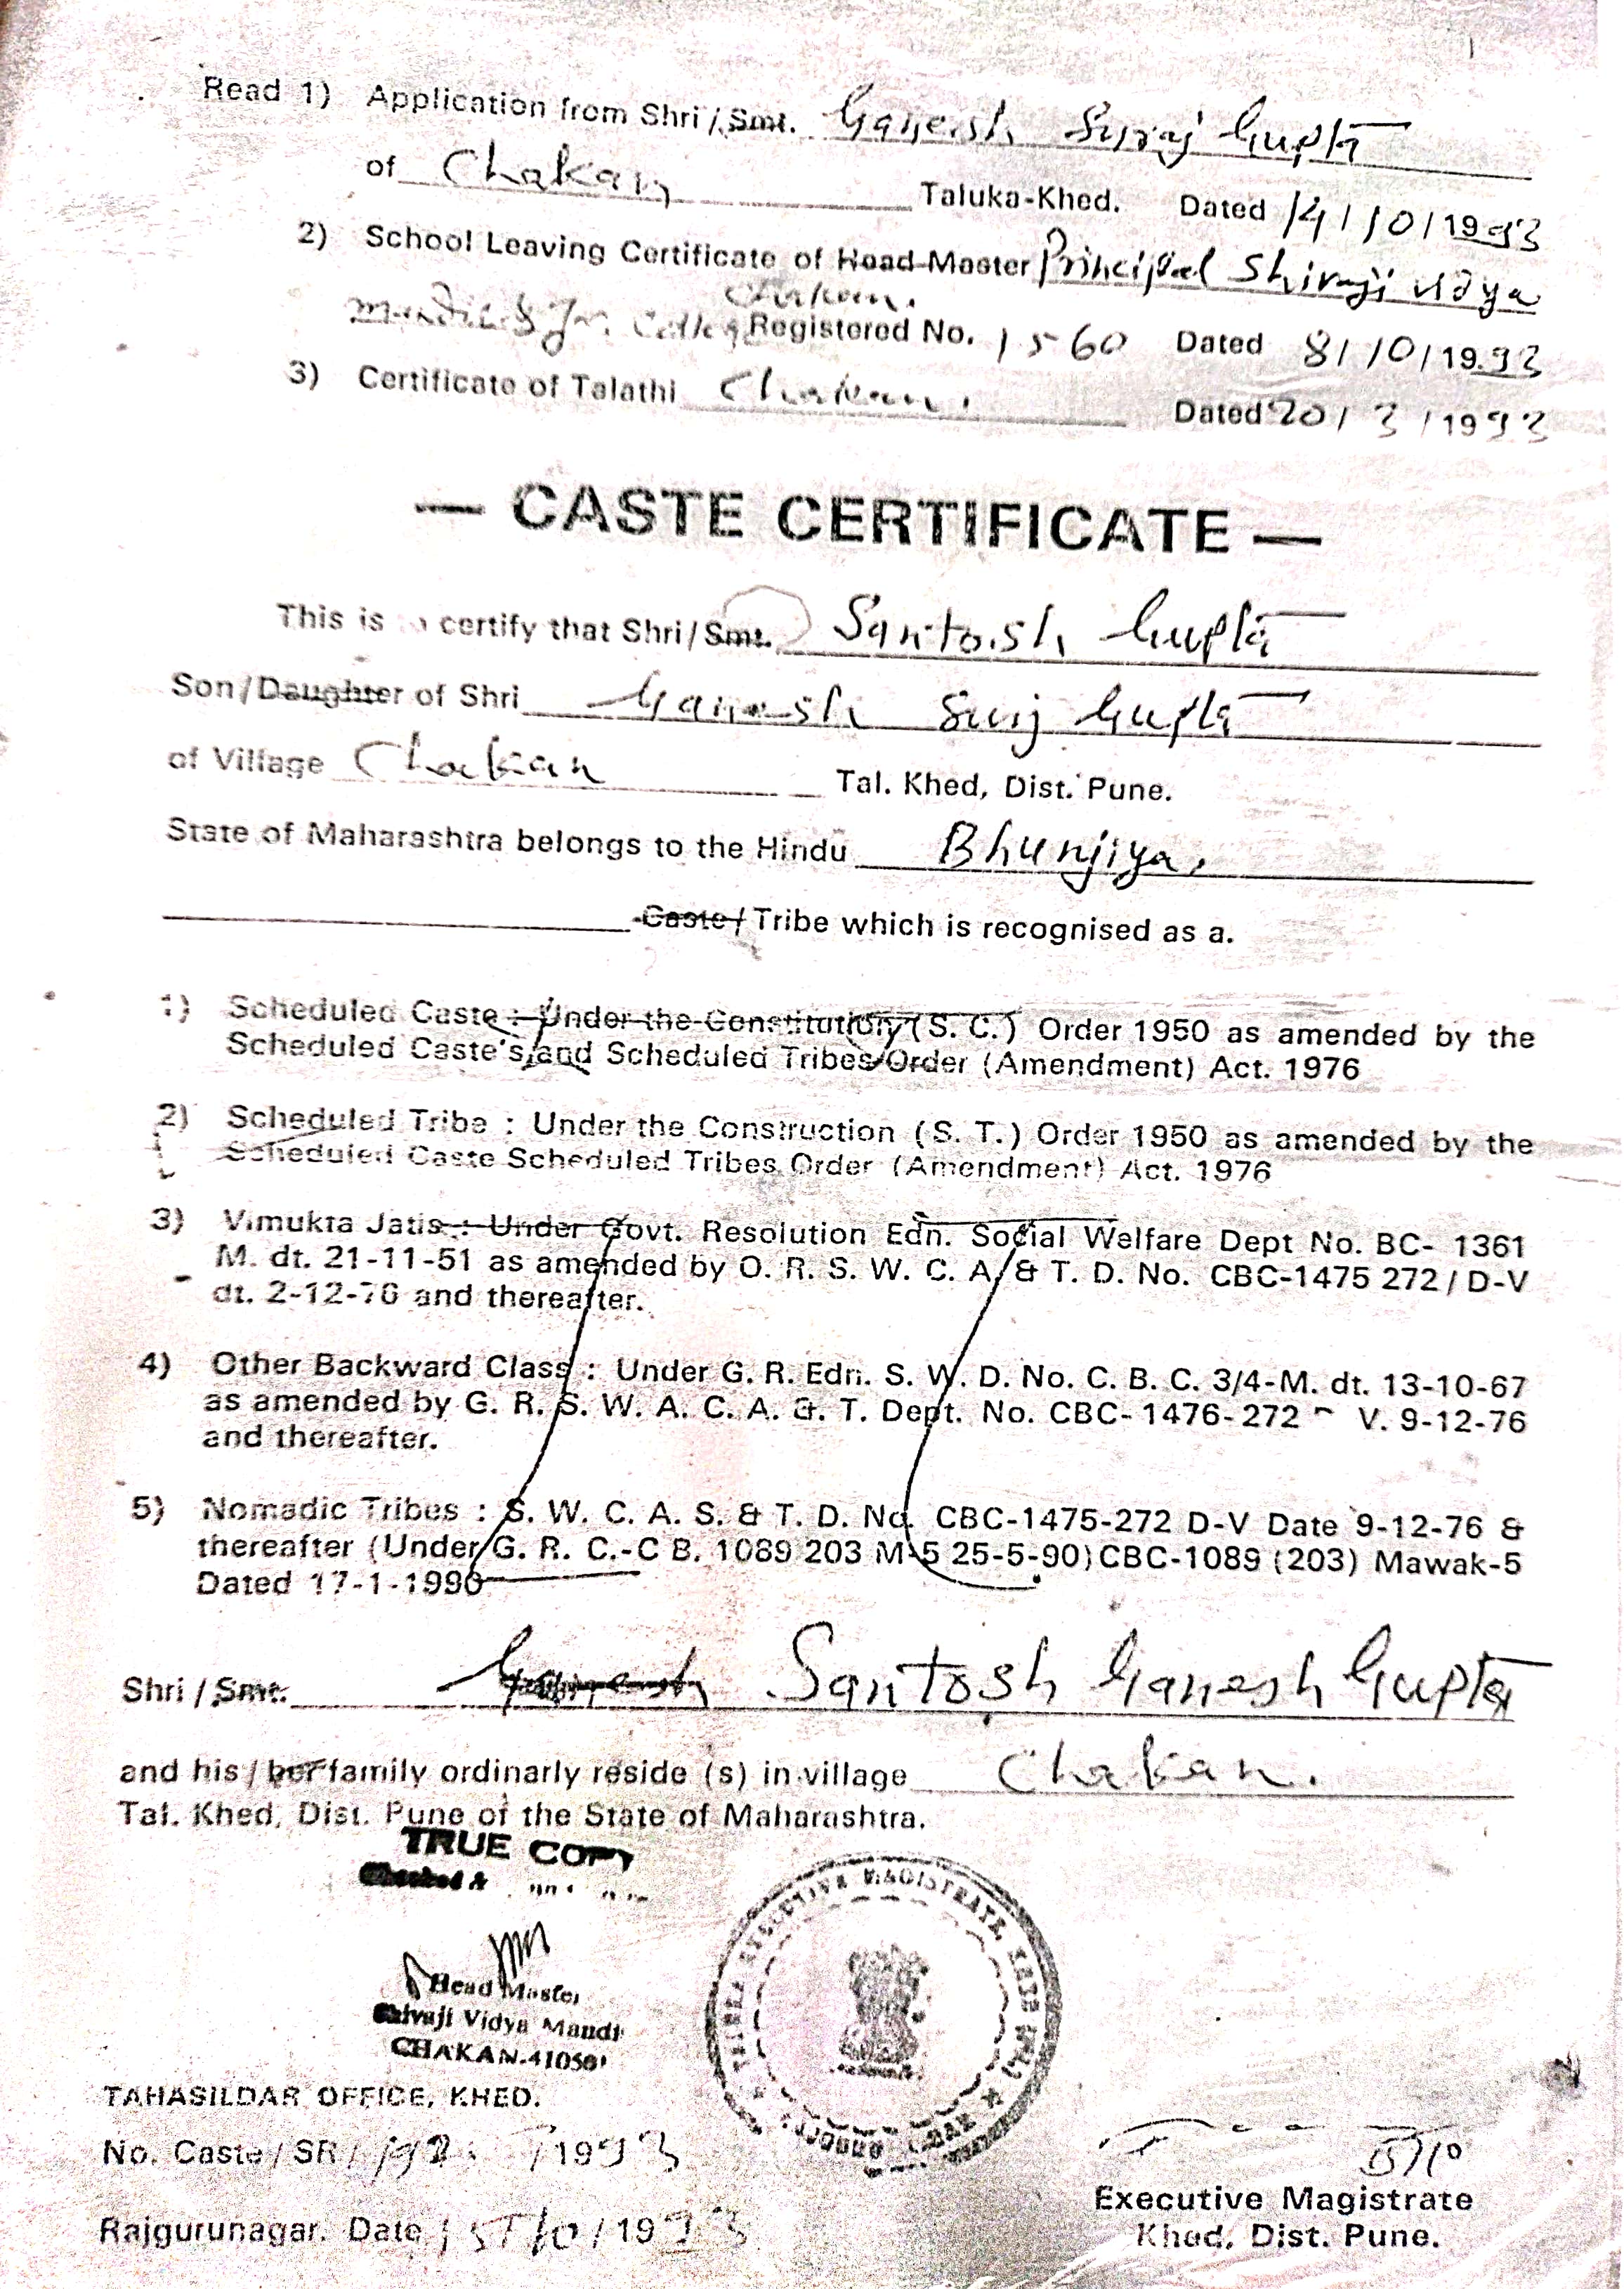 Read 1) Application from Shri / Smt. Ganesh Suraj Gupta
of Chakan Taluka-Khed. Dated 14/10/1993
2) School Leaving Certificate of Head Master Principal Shivaji Vidya
Chakan.
Mandir & Jr. College Registered No. 1560 Dated 8/10/1993
3) Certificate of Talathi Chakan. Dated 20/3/1993
— CASTE CERTIFICATE —
This is certify that Shri/Smt. Santosh Gupta
Son/Daughter of Shri Ganesh Suraj Gupta
of Village Chakan Tal. Khed, Dist. Pune.
State of Maharashtra belongs to the Hindu Bhunjiya.
Caste / Tribe which is recognised as a.
1) Scheduled Caste : Under the Constitution (S. C.) Order 1950 as amended by the
Scheduled Caste's and Scheduled Tribes Order (Amendment) Act. 1976
2) Scheduled Tribe : Under the Construction (S. T.) Order 1950 as amended by the
Scheduled Caste Scheduled Tribes Order (Amendment) Act. 1976
3) Vimukta Jatis : Under Govt. Resolution Edn. Social Welfare Dept No. BC- 1361
M. dt. 21-11-51 as amended by O. R. S. W. C. A. & T. D. No. CBC-1475 272 / D-V
dt. 2-12-76 and thereafter.
4) Other Backward Class : Under G. R. Edn. S. W. D. No. C. B. C. 3/4-M. dt. 13-10-67
as amended by G. R. S. W. A. C. A. &. T. Dept. No. CBC-1476-272 V. 9-12-76
and thereafter.
5) Nomadic Tribes : S. W. C. A. S. & T. D. No. CBC-1475-272 D-V Date 9-12-76 &
thereafter (Under G. R. C.-C B. 1089 203 M-5 25-5-90) CBC-1089 (203) Mawak-5
Dated 17-1-1990
Shri / Smt. Ganesh Santosh Ganesh Gupta
and his / her family ordinarly reside (s) in village Chakan.
Tal. Khed, Dist. Pune of the State of Maharashtra.
TRUE COPY
Head Master
Shivaji Vidya Mandir
CHAKAN-410501
EXECUTIVE MAGISTRATE,
TAHASILDAR OFFICE, KHED.
No. Caste / SR / 1993
Rajgurunagar. Date 15/10/1993
Executive Magistrate
Khed, Dist. Pune.